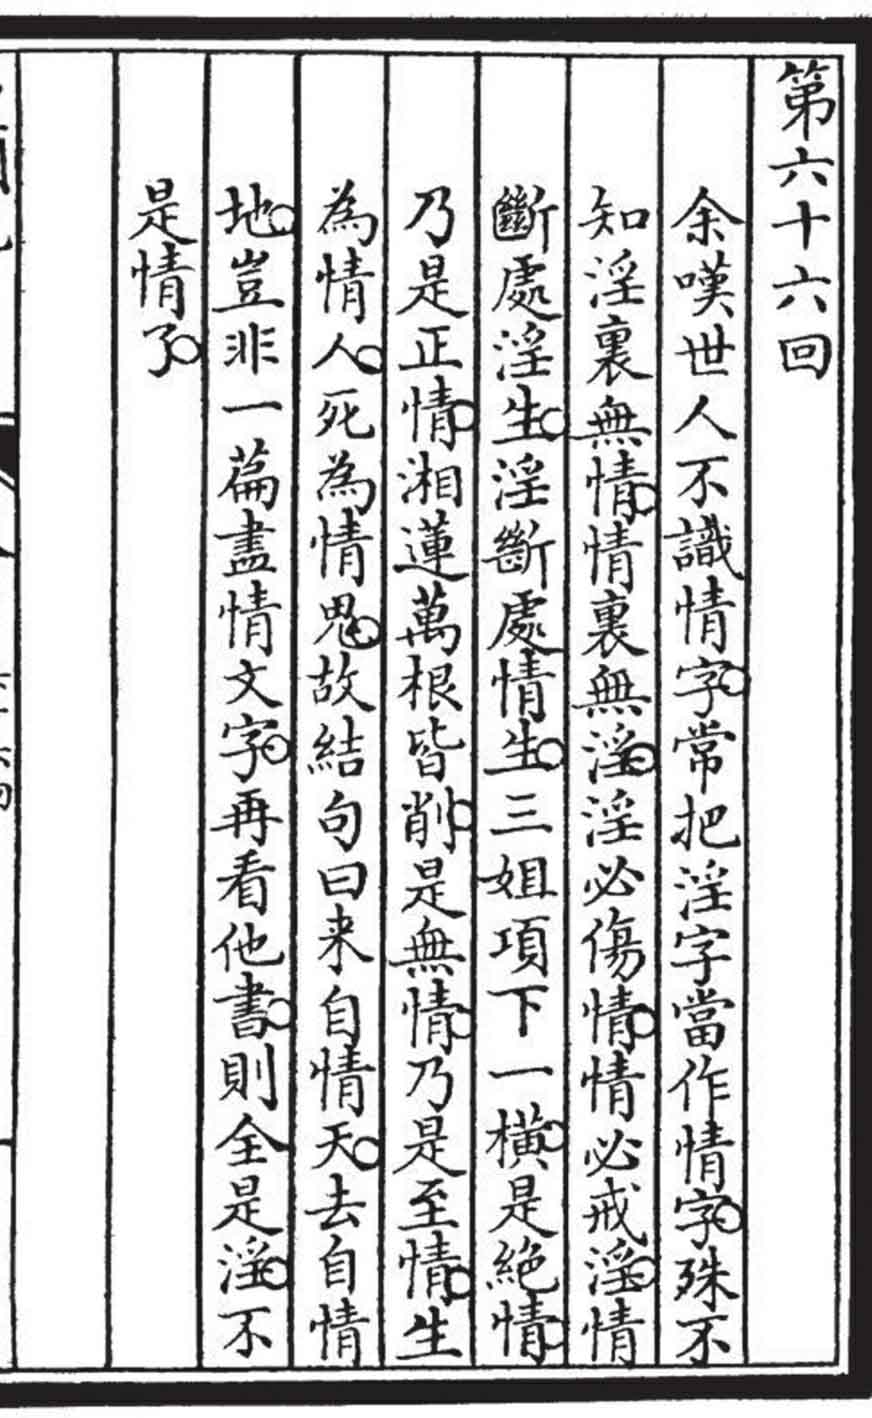 第六十六回
余嘆世人不識情字。常把淫字當作情字。殊不
知淫裏無情。情裏無淫。淫必傷情。情必戒淫。情
斷處淫生。淫斷處情生。三姐項下一橫。是絕情。
乃是正情。湘蓮萬根皆削。是無情。乃是至情。生
為情人。死為情鬼。故結句曰来自情天。去自情
地。豈非一篇盡情文字。再看他書。則全是淫。不
是情了。